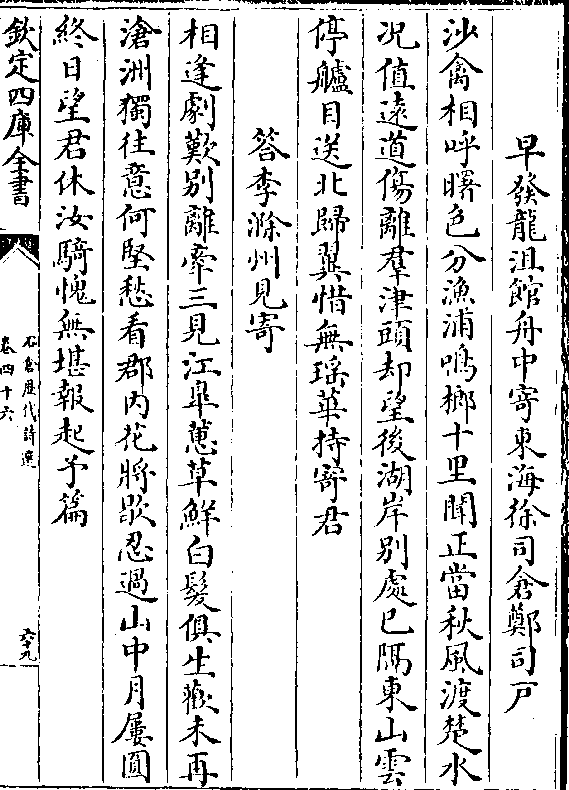 早發龍沮館舟中寄東海徐司倉鄭司戸
沙禽相呼曙色分漁浦鳴榔十里聞正當秋風渡楚水
况值遠道傷離羣津頭却望後湖岸别處已隔東山雲
停艫目送北歸翼惜無瑶華持寄君
答李滁州見寄
相逢劇歎别離牽三見江臯蕙草鮮白髮俱生歡未再
滄洲獨往意何堅愁看郡内花將歇忍過山中月屢圓
終日望君休汝騎愧無堪報起予篇
欽定四庫全書
石倉歷代詩選
卷四十六
六十九